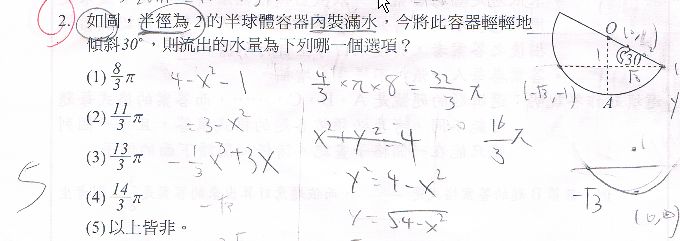 2. 如圖，半徑為 2 的半球體容器內裝滿水，今將此容器輕輕地
傾斜 30°，則流出的水量為下列哪一個選項？
(1) 8/3 π
(2) 11/3 π
(3) 13/3 π
(4) 14/3 π
(5) 以上皆非。
4-x²-1
=3-x²
-1/3 x³+3x
4/3 ×π×8 = 32/3 π
16/3 π
x²+y²=4
y²=4-x²
y=√4-x²
O
1
30°
√3
(-√3,-1)
A
-√3
5